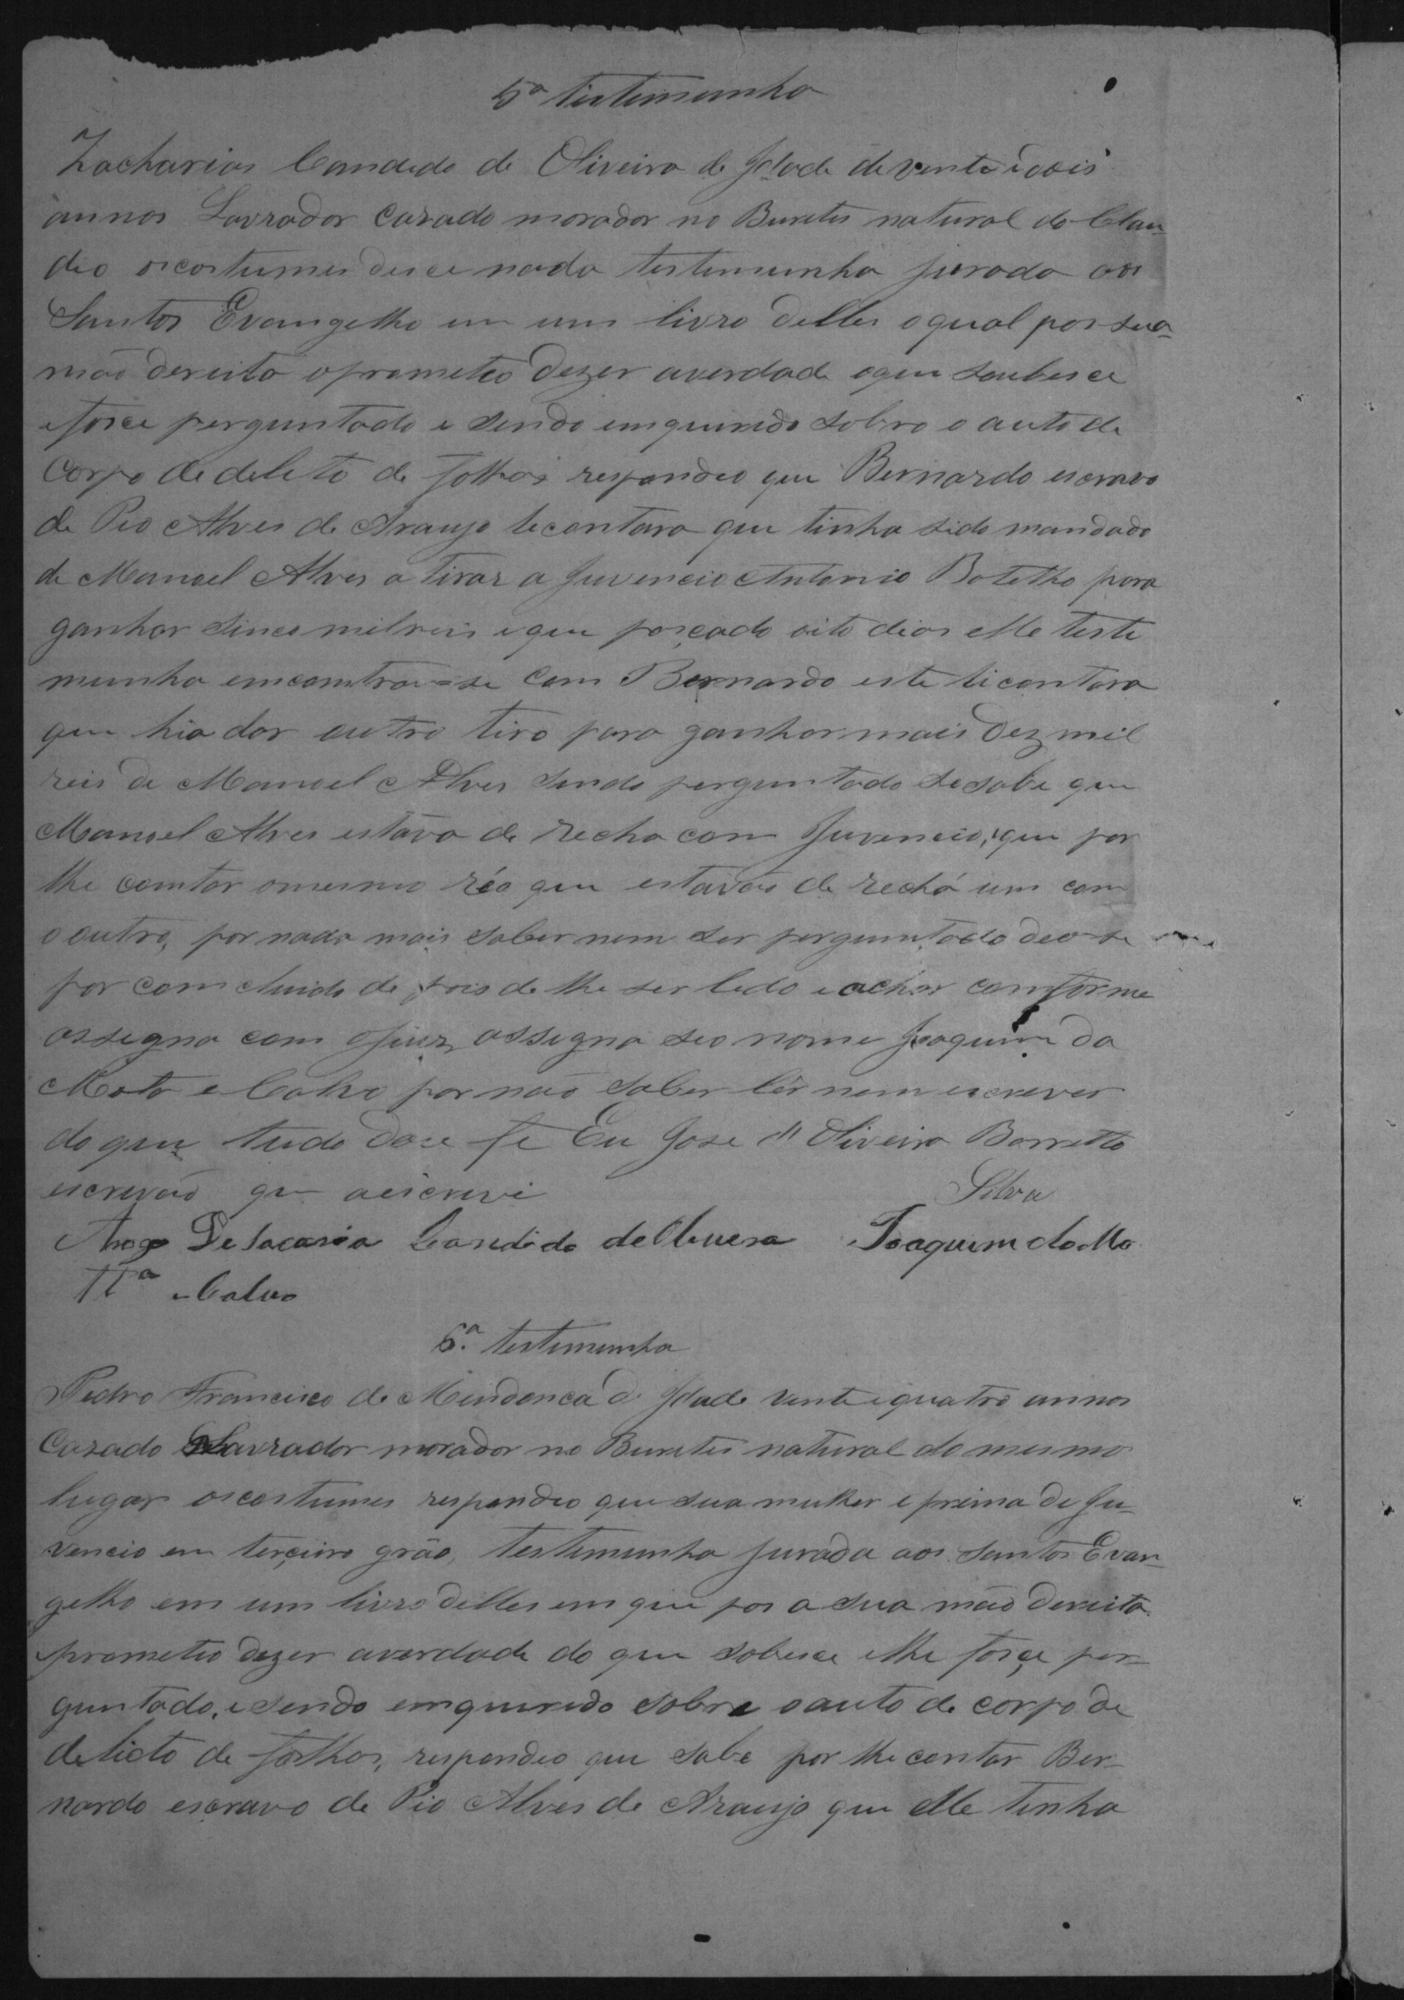 5ª testemunha
Zacharias Candido de Oliveira de Idade de vente i dois
annos Lavrador Cazado morador no Buretis natural do Clau-
dio os costumes disce nada testemunha jurada aos
Santos Evangelho em um livro delles o qual pos sua
mão dereita o prometeo dezer averdade oque soubesce
e fosce perguntado e sendo emquirido sobre o auto de
Corpo de deleto de folhas respondeo que Bernardo escravo
de Pio Alves de Araujo lecontara que tinha sido mandado
de Manoel Alves a tirar a Juvencio Antonio Botelho para
ganhar sinco milreis e que pasçado oito dias elle teste
munha emcomtrou-se com Bernardo este licontara
que hia dar outro tiro para ganhar mais Dez mil
reis de Manoel Alves sendo perguntado se sabe que
Manoel Alves estava de recha com Juvencio, que por
lhe comtar omesmo réo que estavão de rechá um com
o outro, por nada mais saber nem ser perguntado deo-se
por comcluido de pois de lhe ser lido e achar comforme
assegna com ojuiz, assegna seo nome Joaquim da
Mota e Calvo por não saber lêr nem escrever
do que tudo dou fé Eu Jose d'Oliveira Barretto
escrevão que aescrevi Silva
Arogo De Sacaria Candido de Oliveira Joaquim da Mo
tta e Calvo
6.ª testemunha
Pedro Francisco de Mendonca de Idade vente e quatro annos
Cazado Lavrador morador no Buretis natural do mesmo
lugar os costumes respondeo que sua mulher e prima de Ju-
vencio em terçeiro gráo, testemunha jurada aos Santos Evan-
gelho em um livro delles em que pos a sua mão dereita
prometeo dezer averdade do que sobesce elhe fosçe per-
guntado, e sendo emquirido sobre o auto de corpo de
delicto de folhas, respondeo que sabe por lhe contar Ber-
nardo escravo de Pio Alves de Araujo que elle tinha